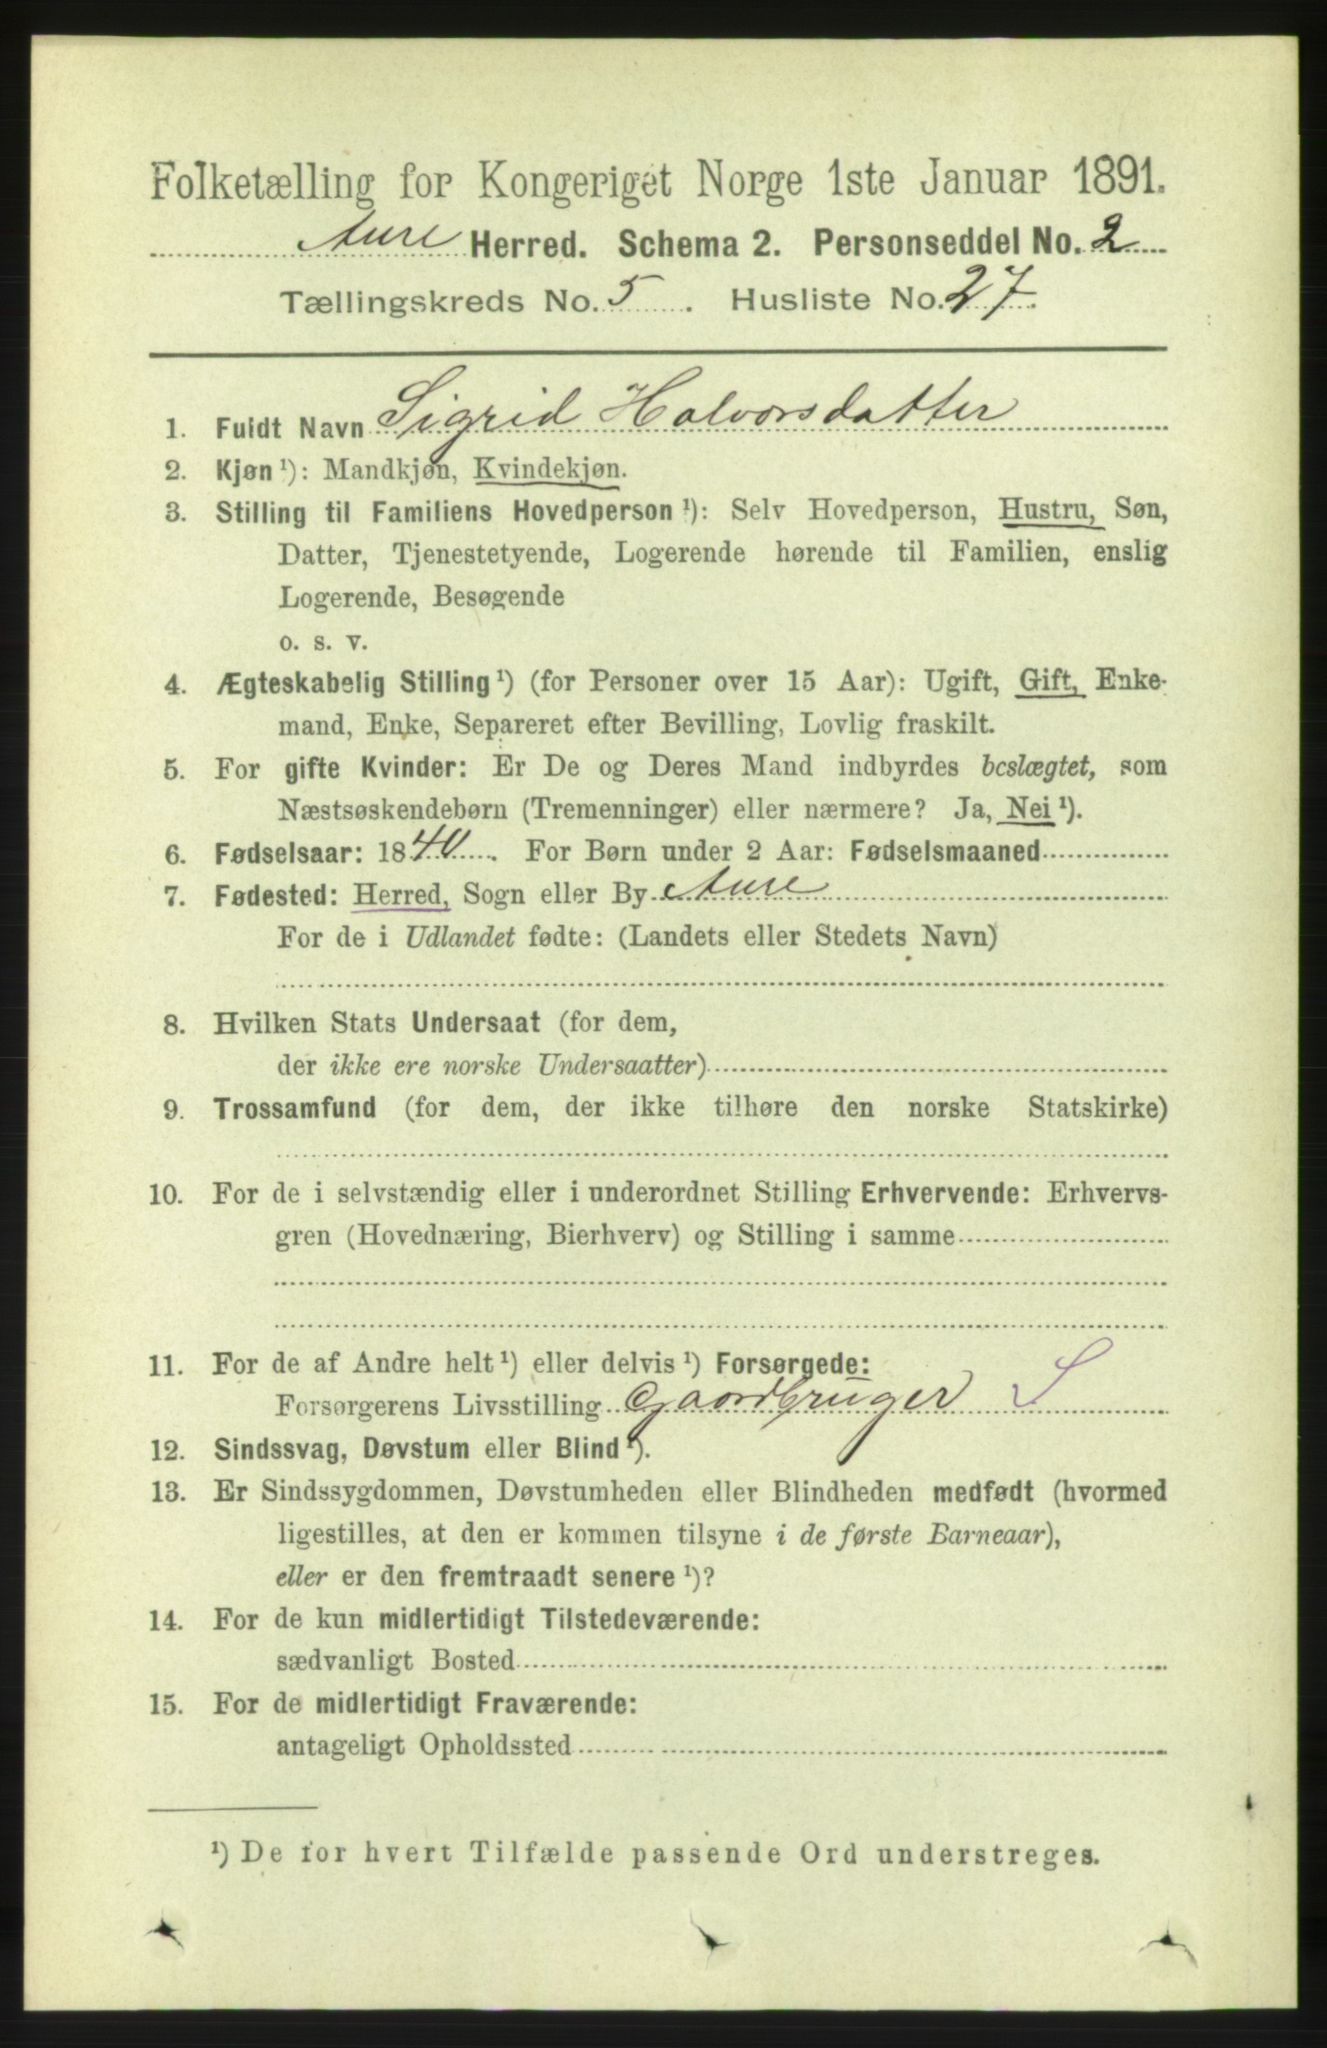 Folketælling for Kongeriget Norge 1ste Januar 1891.
Aure Herred. Schema 2. Personseddel No. 2
Tællingskreds No. 5. Husliste No. 27.
1. Fuldt Navn Sigrid Halvorsdatter
2. Kjøn ¹): Mandkjøn, Kvindekjøn.
3. Stilling til Familiens Hovedperson ¹): Selv Hovedperson, Hustru, Søn,
Datter, Tjenestetyende, Logerende hørende til Familien, enslig
Logerende, Besøgende
o. s. v.
4. Ægteskabelig Stilling ¹) (for Personer over 15 Aar): Ugift, Gift, Enke-
mand, Enke, Separeret efter Bevilling, Lovlig fraskilt.
5. For gifte Kvinder: Er De og Deres Mand indbyrdes beslægtet, som
Næstsøskendebørn (Tremenninger) eller nærmere? Ja, Nei ¹).
6. Fødselsaar: 1840. For Børn under 2 Aar: Fødselsmaaned
7. Fødested: Herred, Sogn eller By Aure
For de i Udlandet fødte: (Landets eller Stedets Navn)
8. Hvilken Stats Undersaat (for dem,
der ikke ere norske Undersaatter)
9. Trossamfund (for dem, der ikke tilhøre den norske Statskirke)
10. For de i selvstændig eller i underordnet Stilling Erhvervende: Erhvervs-
gren (Hovednæring, Bierhverv) og Stilling i samme
11. For de af Andre helt ¹) eller delvis ¹) Forsørgede:
Forsørgerens Livsstilling Gaardbruger S
12. Sindssvag, Døvstum eller Blind ¹).
13. Er Sindssygdommen, Døvstumheden eller Blindheden medfødt (hvormed
ligestilles, at den er kommen tilsyne i de første Barneaar),
eller er den fremtraadt senere ¹)?
14. For de kun midlertidigt Tilstedeværende:
sædvanligt Bosted
15. For de midlertidigt Fraværende:
antageligt Opholdssted
¹) De for hvert Tilfælde passende Ord understreges.